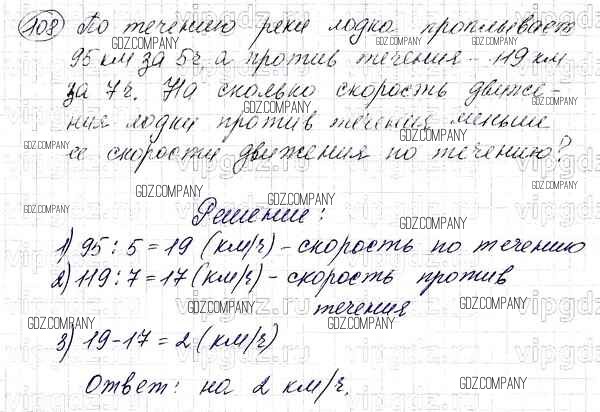 108 По течению реки лодка проплывает
95 км за 5ч, а против течения - 119 км
за 7ч. На сколько скорость движе-
ния лодки против течения меньше
ее скорости движения по течению?
Решение:
1) 95 : 5 = 19 (км/ч) - скорость по течению
2) 119 : 7 = 17 (км/ч) - скорость против
течения
3) 19 - 17 = 2 (км/ч)
Ответ: на 2 км/ч.
GDZ.COMPANY
vipgdz.ru